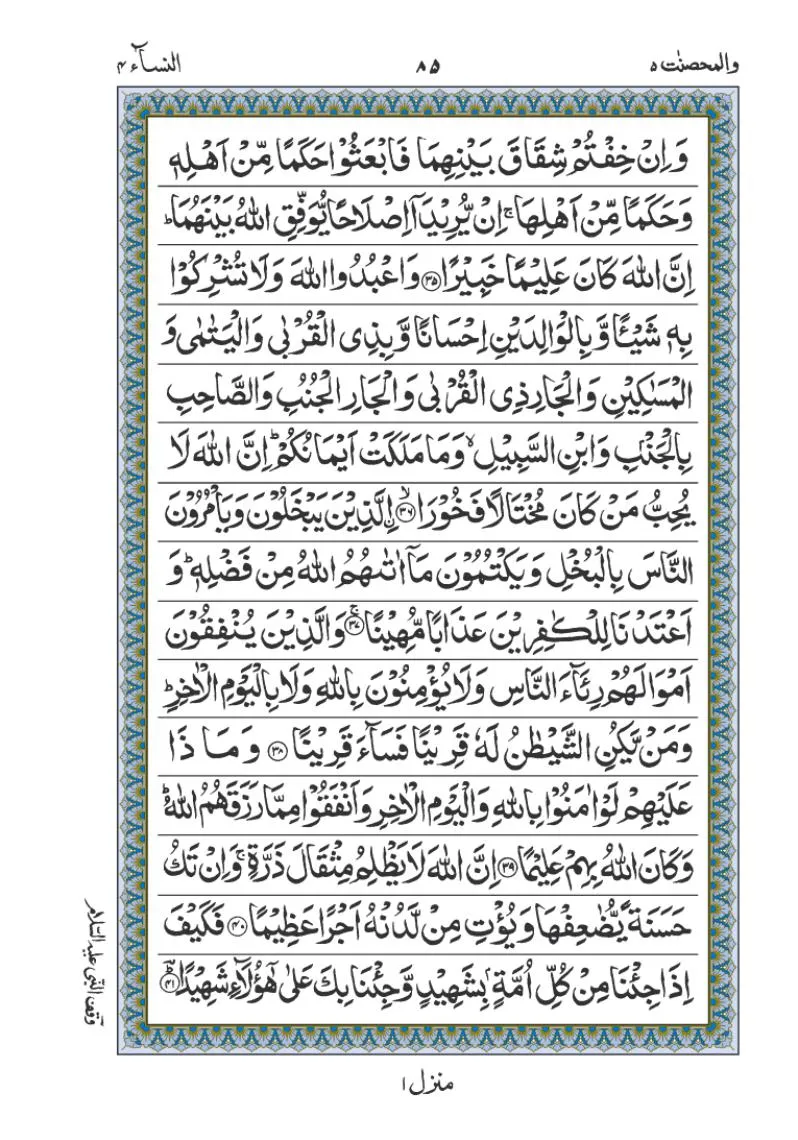 والمحصنٰت ۵ ۸۵ النسآء ۴
وَاِنْ خِفْتُمْ شِقَاقَ بَيْنِهِمَا فَابْعَثُوْا حَكَمًا مِّنْ اَهْلِهٖ
وَحَكَمًا مِّنْ اَهْلِهَا ۚ اِنْ يُّرِيْدَاۤ اِصْلَاحًا يُّوَفِّقِ اللّٰهُ بَيْنَهُمَا ؕ
اِنَّ اللّٰهَ كَانَ عَلِيْمًا خَبِيْرًا ﴿۳۵﴾ وَاعْبُدُوا اللّٰهَ وَلَا تُشْرِكُوْا
بِهٖ شَيْـًٔا وَّبِالْوَالِدَيْنِ اِحْسَانًا وَّبِذِى الْقُرْبٰى وَالْيَتٰمٰى وَ
الْمَسٰكِيْنِ وَالْجَارِ ذِى الْقُرْبٰى وَالْجَارِ الْجُنُبِ وَالصَّاحِبِ
بِالْجَنْۢبِ وَابْنِ السَّبِيْلِ ۙ وَمَا مَلَكَتْ اَيْمَانُكُمْ ؕ اِنَّ اللّٰهَ لَا
يُحِبُّ مَنْ كَانَ مُخْتَالًا فَخُوْرَا ﴿۳۶﴾ ۙ اۨلَّذِيْنَ يَبْخَلُوْنَ وَيَاْمُرُوْنَ
النَّاسَ بِالْبُخْلِ وَيَكْتُمُوْنَ مَاۤ اٰتٰٮهُمُ اللّٰهُ مِنْ فَضْلِهٖ ؕ وَ
اَعْتَدْنَا لِلْكٰفِرِيْنَ عَذَابًا مُّهِيْنًا ﴿۳۷﴾ ۚ وَالَّذِيْنَ يُنْفِقُوْنَ
اَمْوَالَهُمْ رِئَآءَ النَّاسِ وَلَا يُؤْمِنُوْنَ بِاللّٰهِ وَلَا بِالْيَوْمِ الْاٰخِرِ ؕ
وَمَنْ يَّكُنِ الشَّيْطٰنُ لَهٗ قَرِيْنًا فَسَآءَ قَرِيْنًا ﴿۳۸﴾ وَمَا ذَا
عَلَيْهِمْ لَوْ اٰمَنُوْا بِاللّٰهِ وَالْيَوْمِ الْاٰخِرِ وَاَنْفَقُوْا مِمَّا رَزَقَهُمُ اللّٰهُ ؕ
وَكَانَ اللّٰهُ بِهِمْ عَلِيْمًا ﴿۳۹﴾ اِنَّ اللّٰهَ لَا يَظْلِمُ مِثْقَالَ ذَرَّةٍ ۚ وَاِنْ تَكُ
حَسَنَةً يُّضٰعِفْهَا وَيُؤْتِ مِنْ لَّدُنْهُ اَجْرًا عَظِيْمًا ﴿۴۰﴾ فَكَيْفَ
اِذَا جِئْنَا مِنْ كُلِّ اُمَّةٍۭ بِشَهِيْدٍ وَّجِئْنَا بِكَ عَلٰى هٰٓؤُلَآءِ شَهِيْدًا ﴿۴۱﴾ ؕ
وقف النبى عليه السلام
منزل ۱